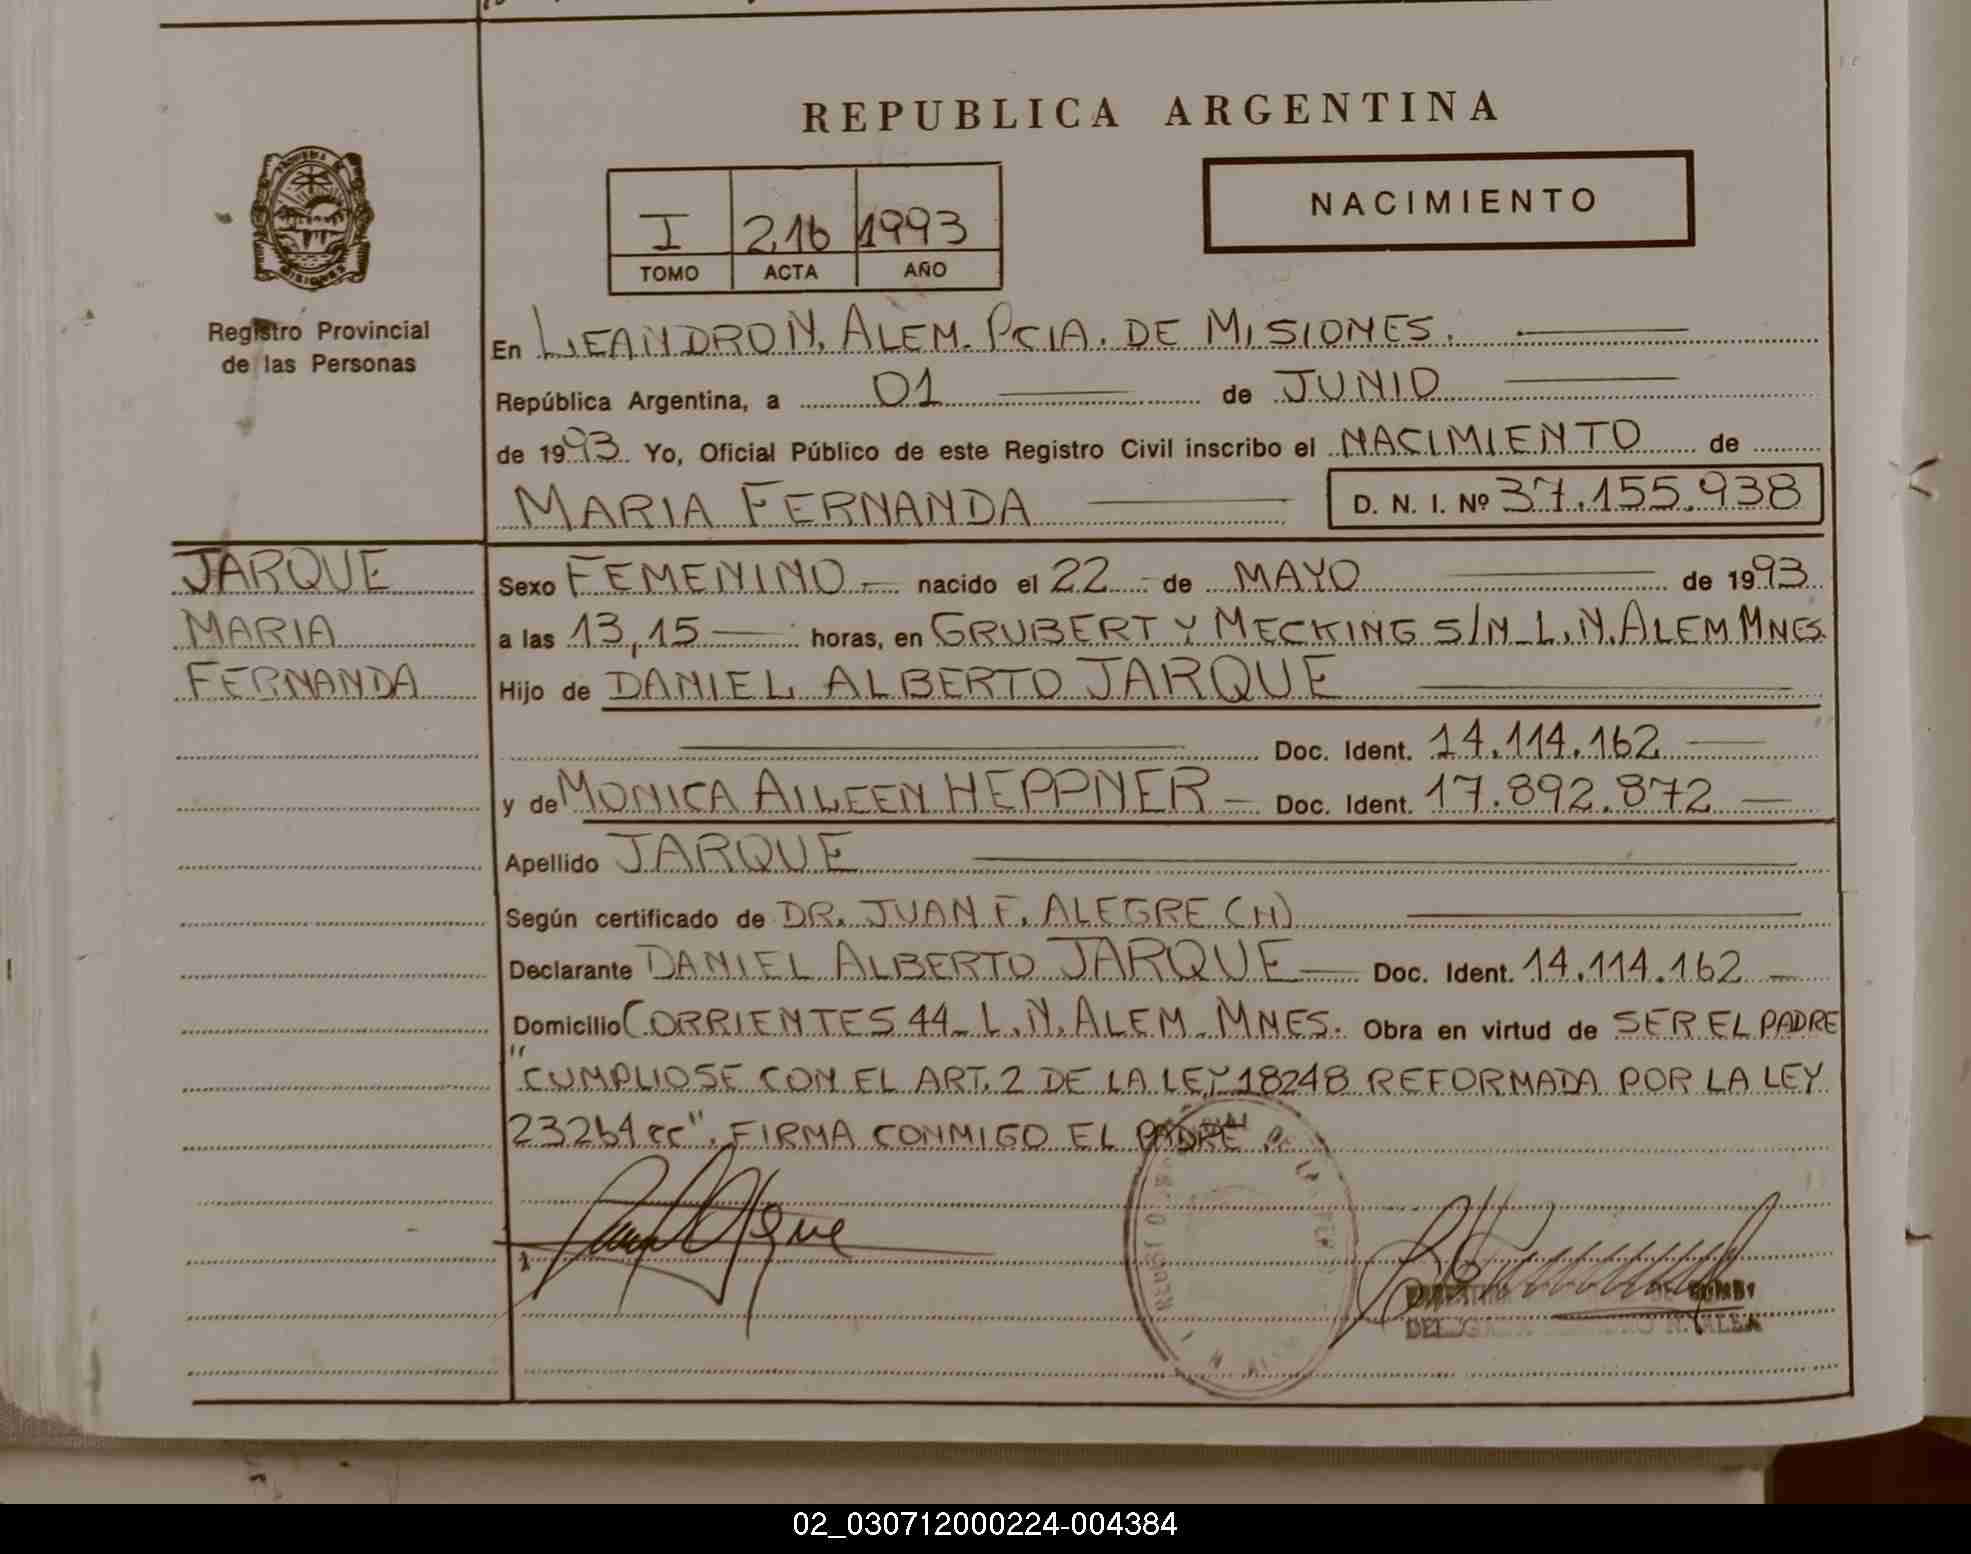 REPUBLICA ARGENTINA
NACIMIENTO
I 216 1993
TOMO ACTA AÑO
MISIONES
Registro Provincial
de las Personas
En LEANDRO N. ALEM. PCIA. DE MISIONES.
República Argentina, a 01 de JUNIO
de 1993 Yo, Oficial Público de este Registro Civil inscribo el NACIMIENTO de
MARIA FERNANDA D. N. I. Nº 37.155.938
JARQUE
MARIA
FERNANDA
Sexo FEMENINO nacido el 22 de MAYO de 1993
a las 13,15 horas, en GRUBERT Y MECKING S/N L.N. ALEM MNES
Hijo de DANIEL ALBERTO JARQUE
Doc. Ident. 14.114.162
y de MONICA AILEEN HEPPNER Doc. Ident. 17.892.872
Apellido JARQUE
Según certificado de DR. JUAN F. ALEGRE (H)
Declarante DANIEL ALBERTO JARQUE Doc. Ident. 14.114.162
Domicilio CORRIENTES 44 L.N. ALEM MNES. Obra en virtud de SER EL PADRE
"CUMPLIOSE CON EL ART. 2 DE LA LEY 18248 REFORMADA POR LA LEY
23264 cc". FIRMA CONMIGO EL PADRE.
02_030712000224-004384